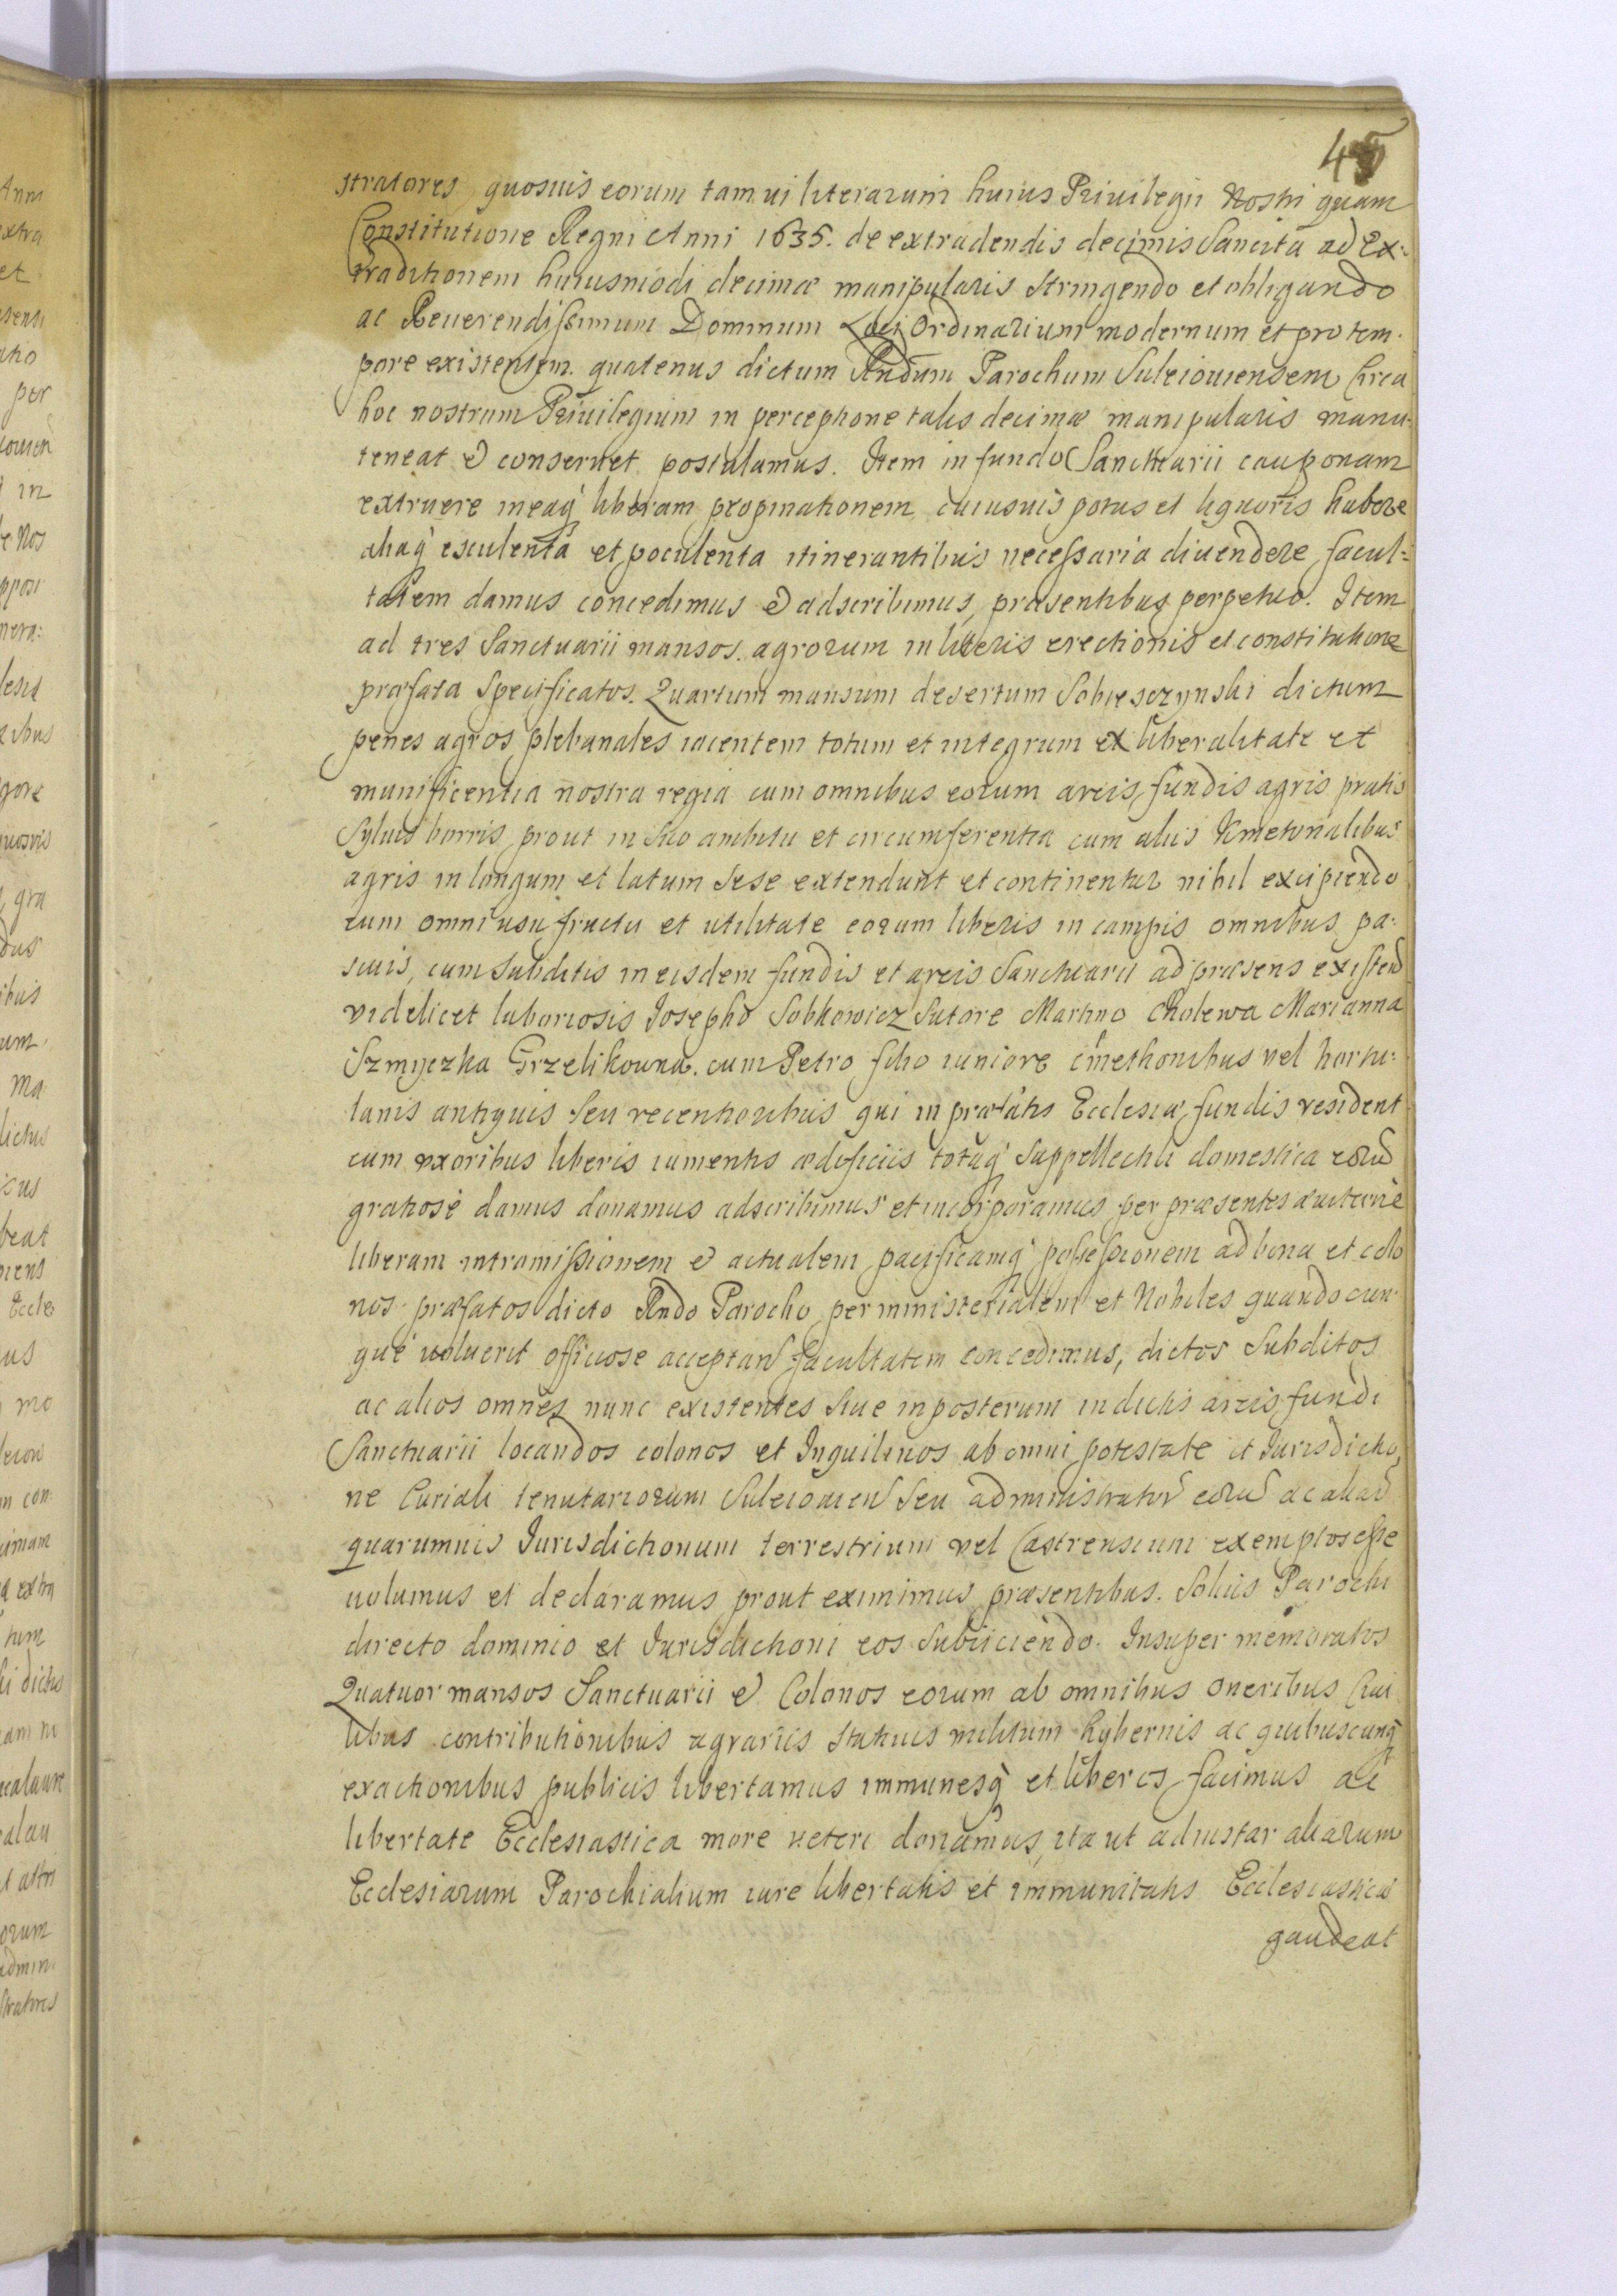 45
stratores quosuis eorum tam ui literarum huius Priuilegii Nostri quam
Constitutione Regni Anni 1635. de extradendis decimis Sancita ad Ex-
traditionem huiusmodi decimæ manipularis stringendo et obligando
ac Reuerendissimum Dominum Loci Ordinarium modernum et pro tem-
pore existentem. quatenus dictum Rndum Parochum Suleiouiensem Circa
hoc nostrum Priuilegium in perceptione talis decimæ manipularis manu-
teneat & conseruet postulamus. Item in fundo Sanctuarii cauponam
extruere ineaq liberam propinationem cuiusuis potus et liquoris habere
aliaq esculenta et poculenta itinerantibus necessaria diuendere facul-
tatem damus concedimus & adscribimus, præsentibus perpetuo. Item
ad tres Sanctuarii mansos. agrorum in literis erectionis et constitutione
præfata Specificatos. Quartum mansum desertum Sobiesczynski dictum
penes agros plebanales iacentem totum et integrum ex liberalitate et
munificentia nostra regia cum omnibus eorum areis, fundis agris pratis
Syluis borris prout in Suo ambitu et circumferentia cum aliis Kmetonalibus
agris in longum et latum Sese extendunt et continentur nihil excipiendo
cum omni usu fructu et utilitate eorum liberis in campis omnibus pa-
scuis, cum Subditis in eisdem fundis et areis Sanctuarii ad præsens existen
videlicet laboriosis Josepho Sobkowicz Sutore Martino Cholewa Marianna
Szmyczka Grzelikowna. cum Petro filio iuniore cmethonibus vel hortu-
lanis antiquis Seu recentioribus qui in præfatis Ecclesiæ fundis resident
cum uxoribus liberis iumentis ædificiis totaq Suppellectili domestica eoru
gratiose damus donamus adscribimus et incorporamus per præsentes æuiterne
liberam intromissionem & actualem pacificamq possessionem ad bona et colo
nos præfatos dicto Rndo Parocho per ministerialem et Nobiles quandocun-
que uoluerit officiose acceptan facultatem concedimus, dictos Subditos
ac alios omnes nunc existentes Siue inposterum in dictis areis fundi
Sanctuarii locandos colonos et Inquilinos ab omni potestate et Jurisdictio
ne Curiali tenutariorum Suleiouien Seu administrator eoru ac aliar
quarumuis Jurisdictionum terrestrium vel Castrensium exemptos esse
uolumus et declaramus prout eximimus præsentibus. Solius Parochi
directo dominio et Jurisdictioni eos Subiiciendo. Insuper memoratos
Quatuor mansos Sanctuarii & Colonos eorum ab omnibus oneribus Ciui
libus contributionibus agrariis Statiuis militum hybernis ac quibuscunq
exactionibus publicis libertamus immunesq et liberos facimus ac
libertate Ecclesiastica more ueteri donamus, ita ut adinstar aliarum
Ecclesiarum Parochialium iure libertatis et immunitatis Ecclesiasticæ
gaudeat